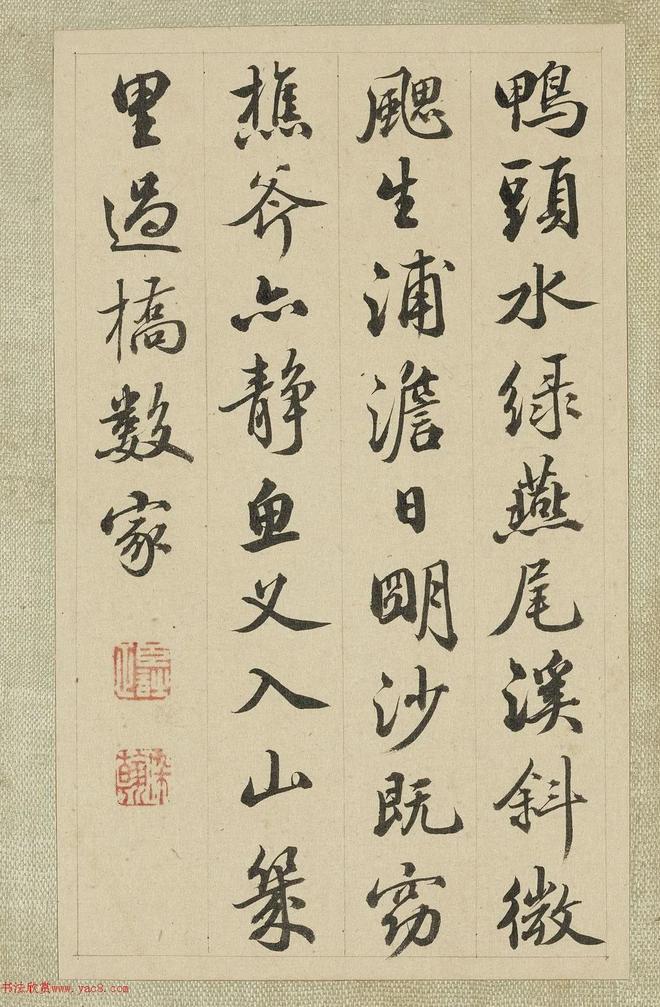 鴨頭水緑燕尾溪斜微
颸生浦澹日明沙既窈
樵斧亦静魚义入山幾
里過橋數家
书法欣赏www.yac8.com